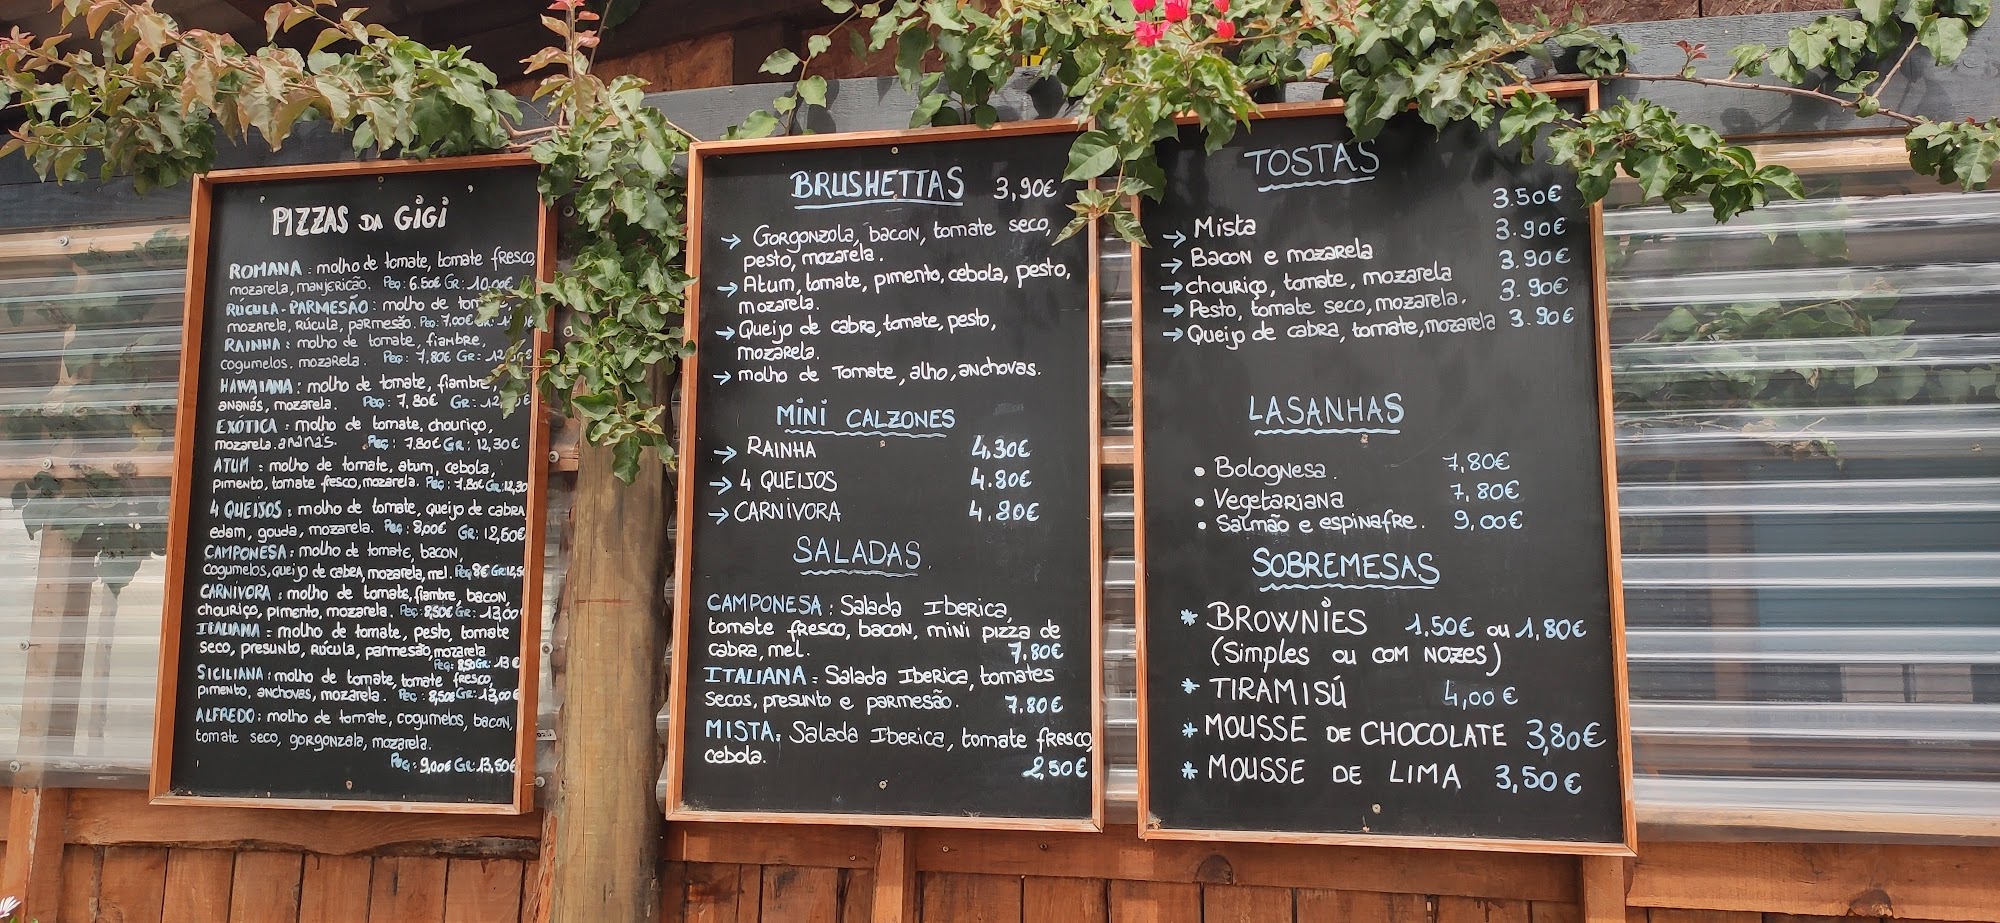 'PIZZAS DA GiGi'
ROMANA: molho de tomate, tomate fresco,
mozarela, manjericão. Peq: 6.50€ Gr: 10.00€
RÚCULA-PARMESÃO: molho de
mozarela, Rúcula, parmesão. Peq: 7.00€
RAINHA: molho de tomate, fiambre,
cogumelos, mozarela. Peq: 7,80€ Gr: 12
HAWAIANA: molho de tomate, fiambre,
ananás, mozarela. Peq: 7,80€ Gr: 12
EXÓTICA: molho de tomate, chouriço,
mozarela. ananás. Peq: 7.80€ Gr: 12,30€
ATUM: molho de tomate, atum, cebola,
pimento, tomate fresco, mozarela. Peq: 7.80€ Gr: 12,30
4 QUEIJOS: molho de tomate, queijo de cabra
edam, gouda, mozarela. Peq: 8,00€ Gr: 12,60€
CAMPONESA: molho de tomate, bacon,
Cogumelos, queijo de cabra, mozarela, mel. Peq 8€ Gr: 12,50
CARNÍVORA: molho de tomate, fiambre, bacon,
chouriço, pimento, mozarela. Peq: 8,50€ Gr: 13,00
ITALIANA: molho de tomate, pesto, tomate
seco, presunto, Rúcula, parmesão, mozarela
Peq: 8,50 Gr: 13€
SICILIANA: molho de tomate, tomate fresco,
pimento, anchovas, mozarela. Peq: 8,50€ Gr: 13,00€
ALFREDO: molho de tomate, cogumelos, bacon,
tomate seco, gorgonzola, mozarela.
Peq: 9,00€ Gr: 13,50€
BRUSHETTAS 3,90€
→ Gorgonzola, bacon, tomate seco,
pesto, mozarela.
→ Atum, tomate, pimento, cebola, pesto,
mozarela.
→ Queijo de cabra, tomate, pesto,
mozarela.
→ molho de Tomate, alho, anchovas.
MiNi CALZONES
→ RAINHA 4,30€
→ 4 QUEIJOS 4.80€
→ CARNIVORA 4.80€
SALADAS
CAMPONESA: Salada Iberica,
tomate fresco, bacon, mini pizza de
cabra, mel. 7.80€
ITALIANA: Salada Iberica, tomates
secos, presunto e parmesão. 7.80€
MISTA: Salada Iberica, tomate fresco,
cebola. 2,50€
TOSTAS
3.50€
→ Mista 3.90€
→ Bacon e mozarela 3.90€
→ chouriço, tomate, mozarela 3.90€
→ Pesto, tomate seco, mozarela.
→ Queijo de cabra, tomate, mozarela 3.90€
LASANHAS
• Bolognesa. 7,80€
• Vegetariana 7,80€
• Salmão e espinafre. 9,00€
SOBREMESAS
* BROWNiES 1,50€ ou 1,80€
(Simples ou com Nozes)
* TIRAMISÚ 4,00€
* MOUSSE DE CHOCOLATE 3,80€
* MOUSSE DE LIMA 3,50€